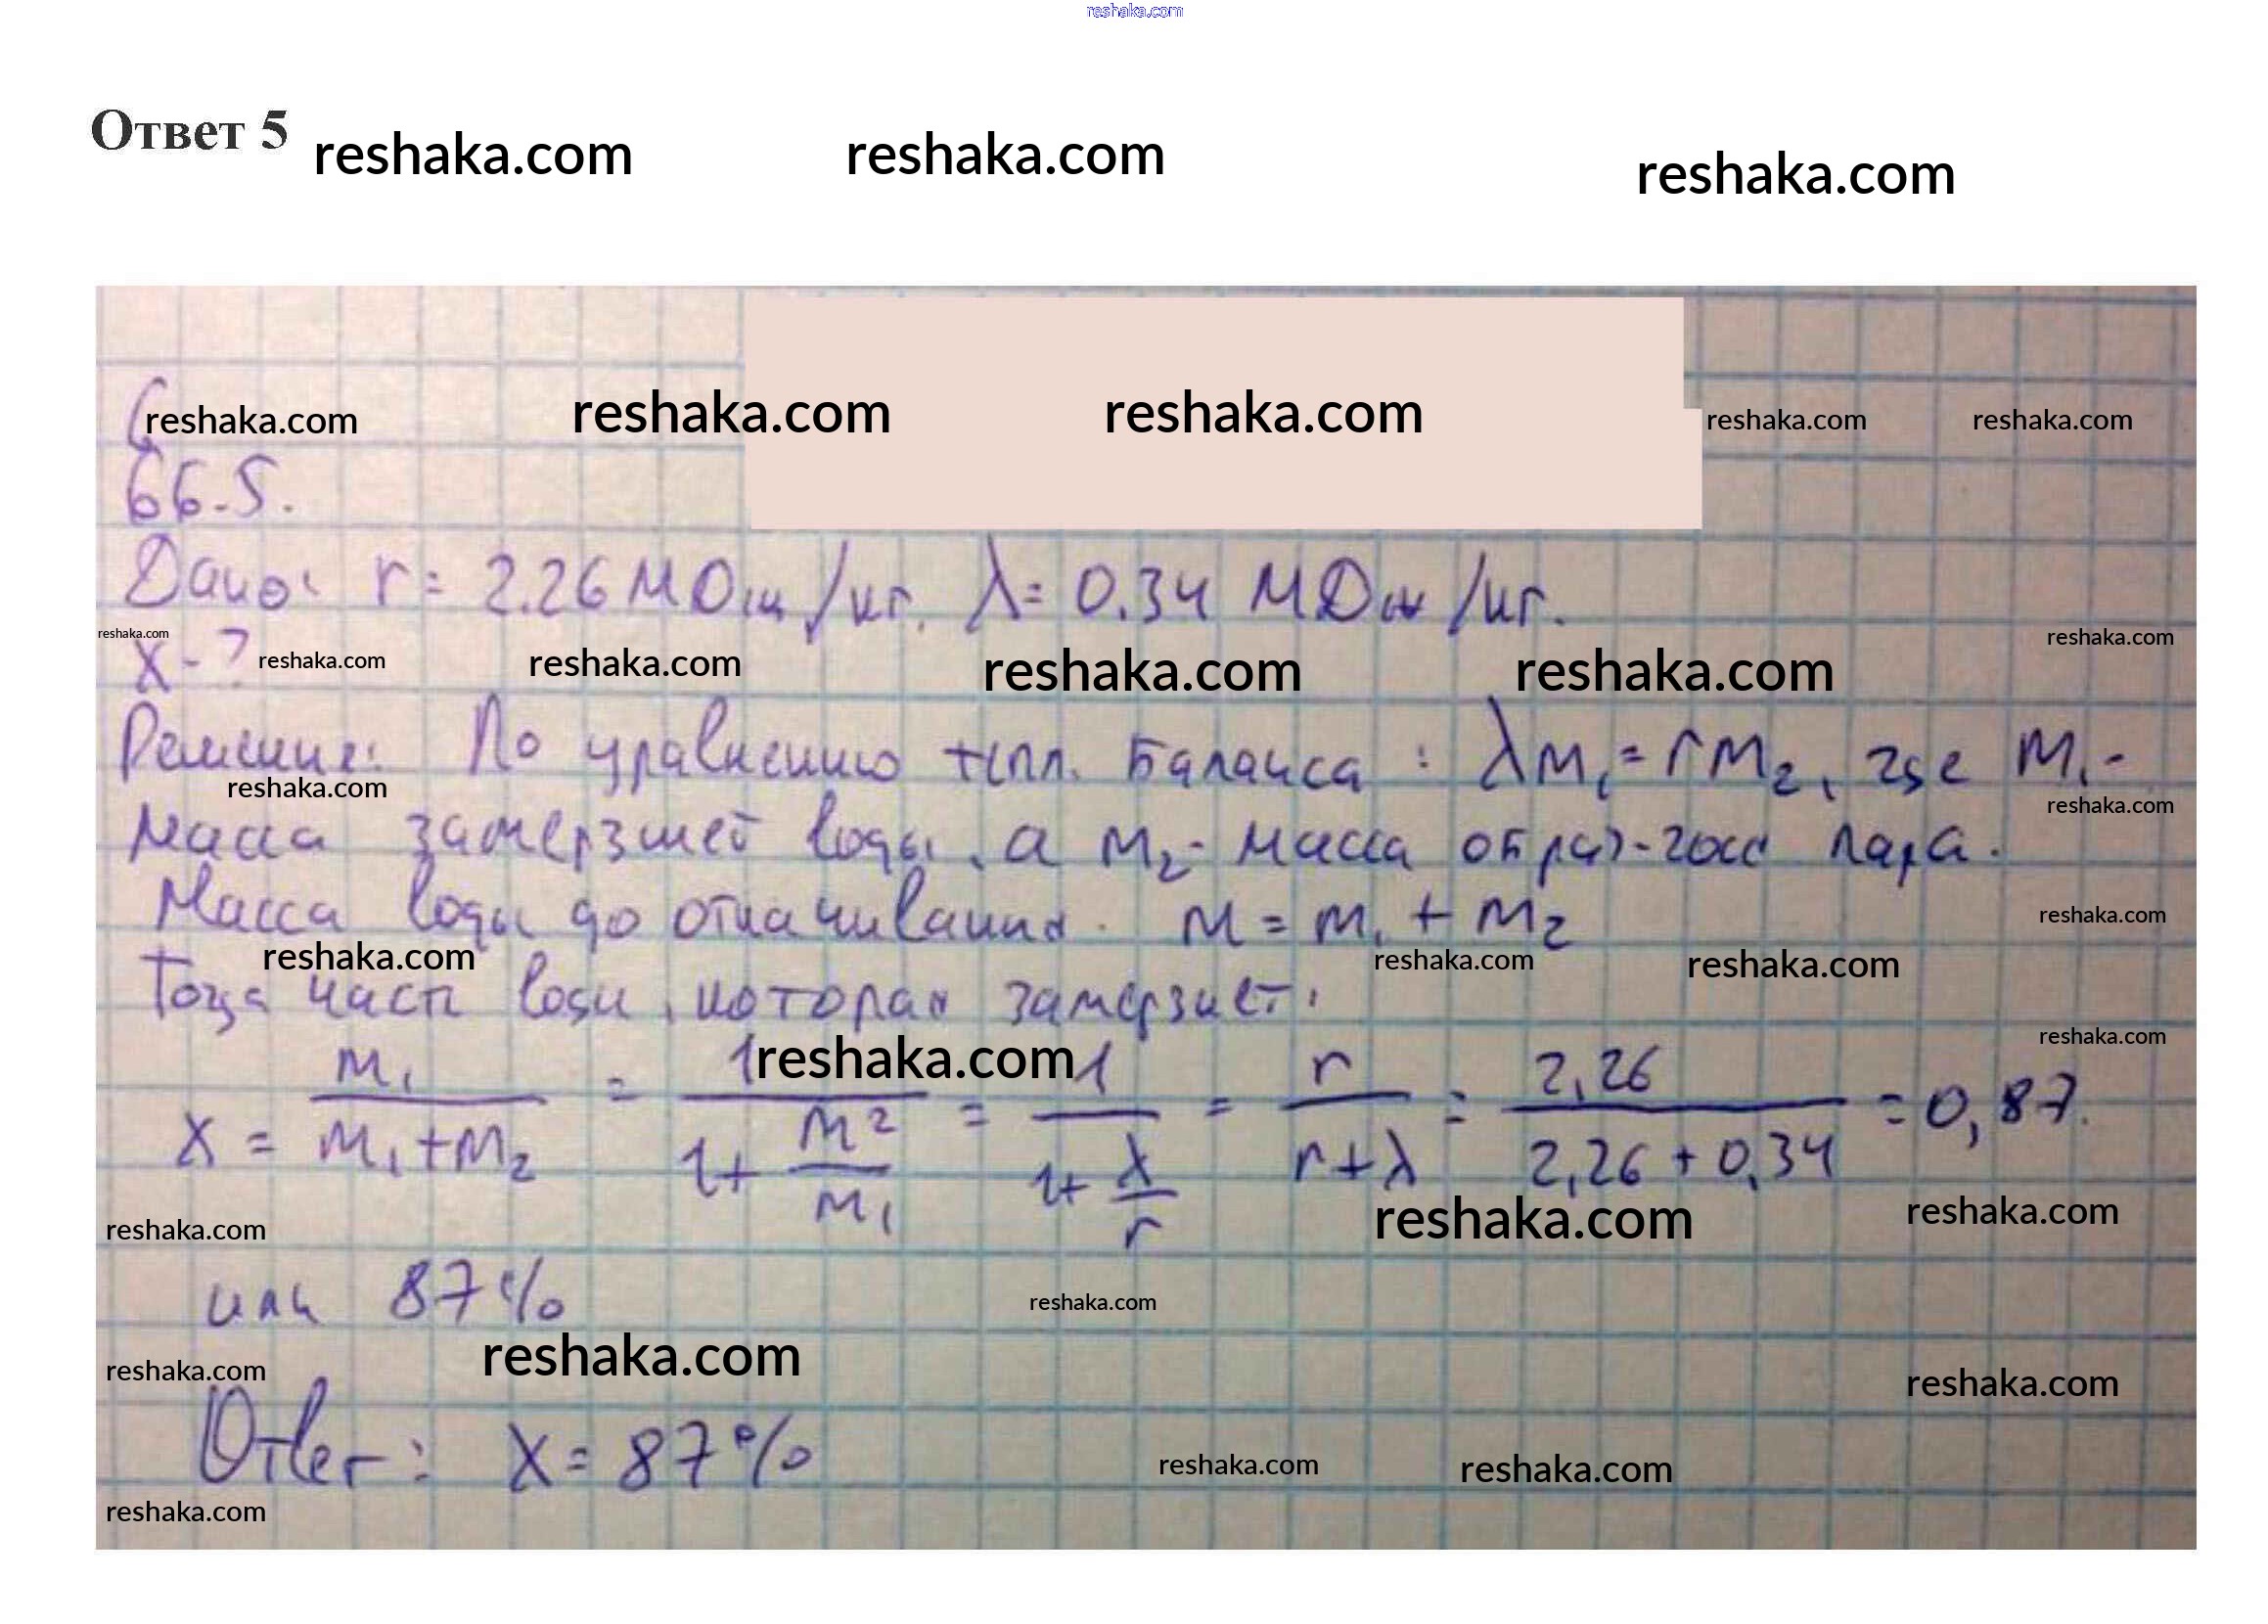 reshaka.com
Ответ 5
reshaka.com reshaka.com reshaka.com
reshaka.com reshaka.com reshaka.com reshaka.com reshaka.com
66.5.
Дано: r = 2.26 МДж/кг. λ = 0.34 МДж/кг.
reshaka.com reshaka.com
x - ? reshaka.com reshaka.com reshaka.com reshaka.com
Решение: По уравнению тепл. баланса : λm₁ = rm₂, где m₁ -
reshaka.com reshaka.com
масса замерзшей воды, а m₂ - масса образ-гося пара.
Масса воды до откачивания. m = m₁ + m₂
reshaka.com
reshaka.com reshaka.com reshaka.com
Тогда часть воды, которая замерзнет:
reshaka.com reshaka.com
x = m₁/(m₁+m₂) = 1/(1+m2/m₁) = 1/(1+λ/r) = r/(r+λ) = 2,26/(2,26+0,34) = 0,87.
reshaka.com reshaka.com reshaka.com
или 87% reshaka.com
reshaka.com reshaka.com reshaka.com
Ответ: x = 87%
reshaka.com reshaka.com
reshaka.com